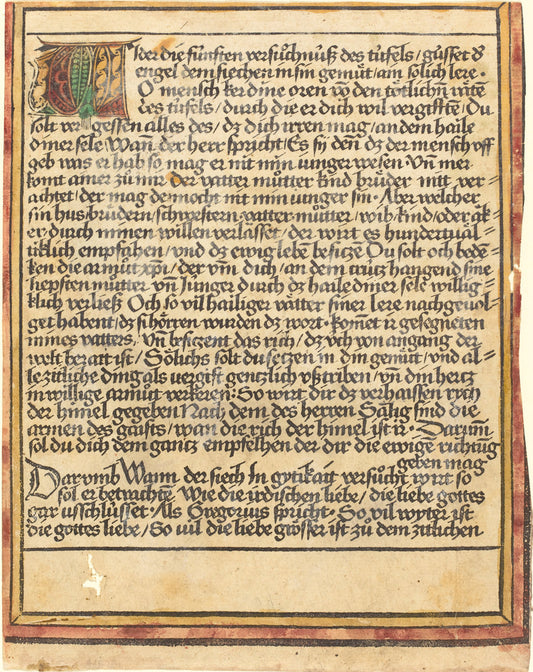 Wider die fünften versůchnůß des tüfels / gůsset d͛
engel dem siechen in sin gemüt / ain sölich lere·
O mensch ker dine oren võ den tötlichñ rätẽ
des tüfels / durch die er dich wil vergifftẽ / Du
solt vergessen alles des / dz dich irren mag / an dem haile
diner sele Wañ der herr spricht / Es sy deñ dz der mensch vff
geb was er hab so mag er nit min iunger wesen Vñ mer
komt ainer zů mir der vatter můtter kind brůder nitt ver
achtet / der mag dennocht nit min iunger sin· Aber welcher
sin hus brůdern / schwestern vatter můtter / wib / kind / oder äk=
er durch minen willen verlässet / der wirt es hundertual=
tiklich empfahen / vnd dz ewig lebẽ besiczẽ Du solt och beden=
ken die armůt xpi / der vm̃ dich / an dem crütz hangend sine
liepsten můtter vñ Junger durch dz haile diner sele willig=
klich verließ Och so vil hailiger vätter siner lere nachgeuol=
get habent / dz si hörren wurden dz wort· kom̃et ir gesegneten
mines vatters· Vñ besiczent das rich / dz üch von angang der
welt berait ist / Sölichs solt du seczen in din gemüt / vnd al=
le zittliche ding als vergift genczlich vßtriben / vñ din hercz
in willige armůt verkeren: So wirt dir dz verhaissen rych
der himel gegeben Nach dem des herren Sälig sind die
armen des gaists / wan die rich der himel ist ir· Darum̃
sol du dich dem gantz empfelhen der dir die ewigẽ richtung
geben mag
Darvmb Wann der siech In gytikait versůcht wirt so
sol er betrachtẽ Wie die irdischen liebe / die liebe gottes
gar vsschlüsset· Als Gregorius spricht· So vil wyter ist
die gottes liebe / So vil die liebe grösser ist zů dem zitlichen